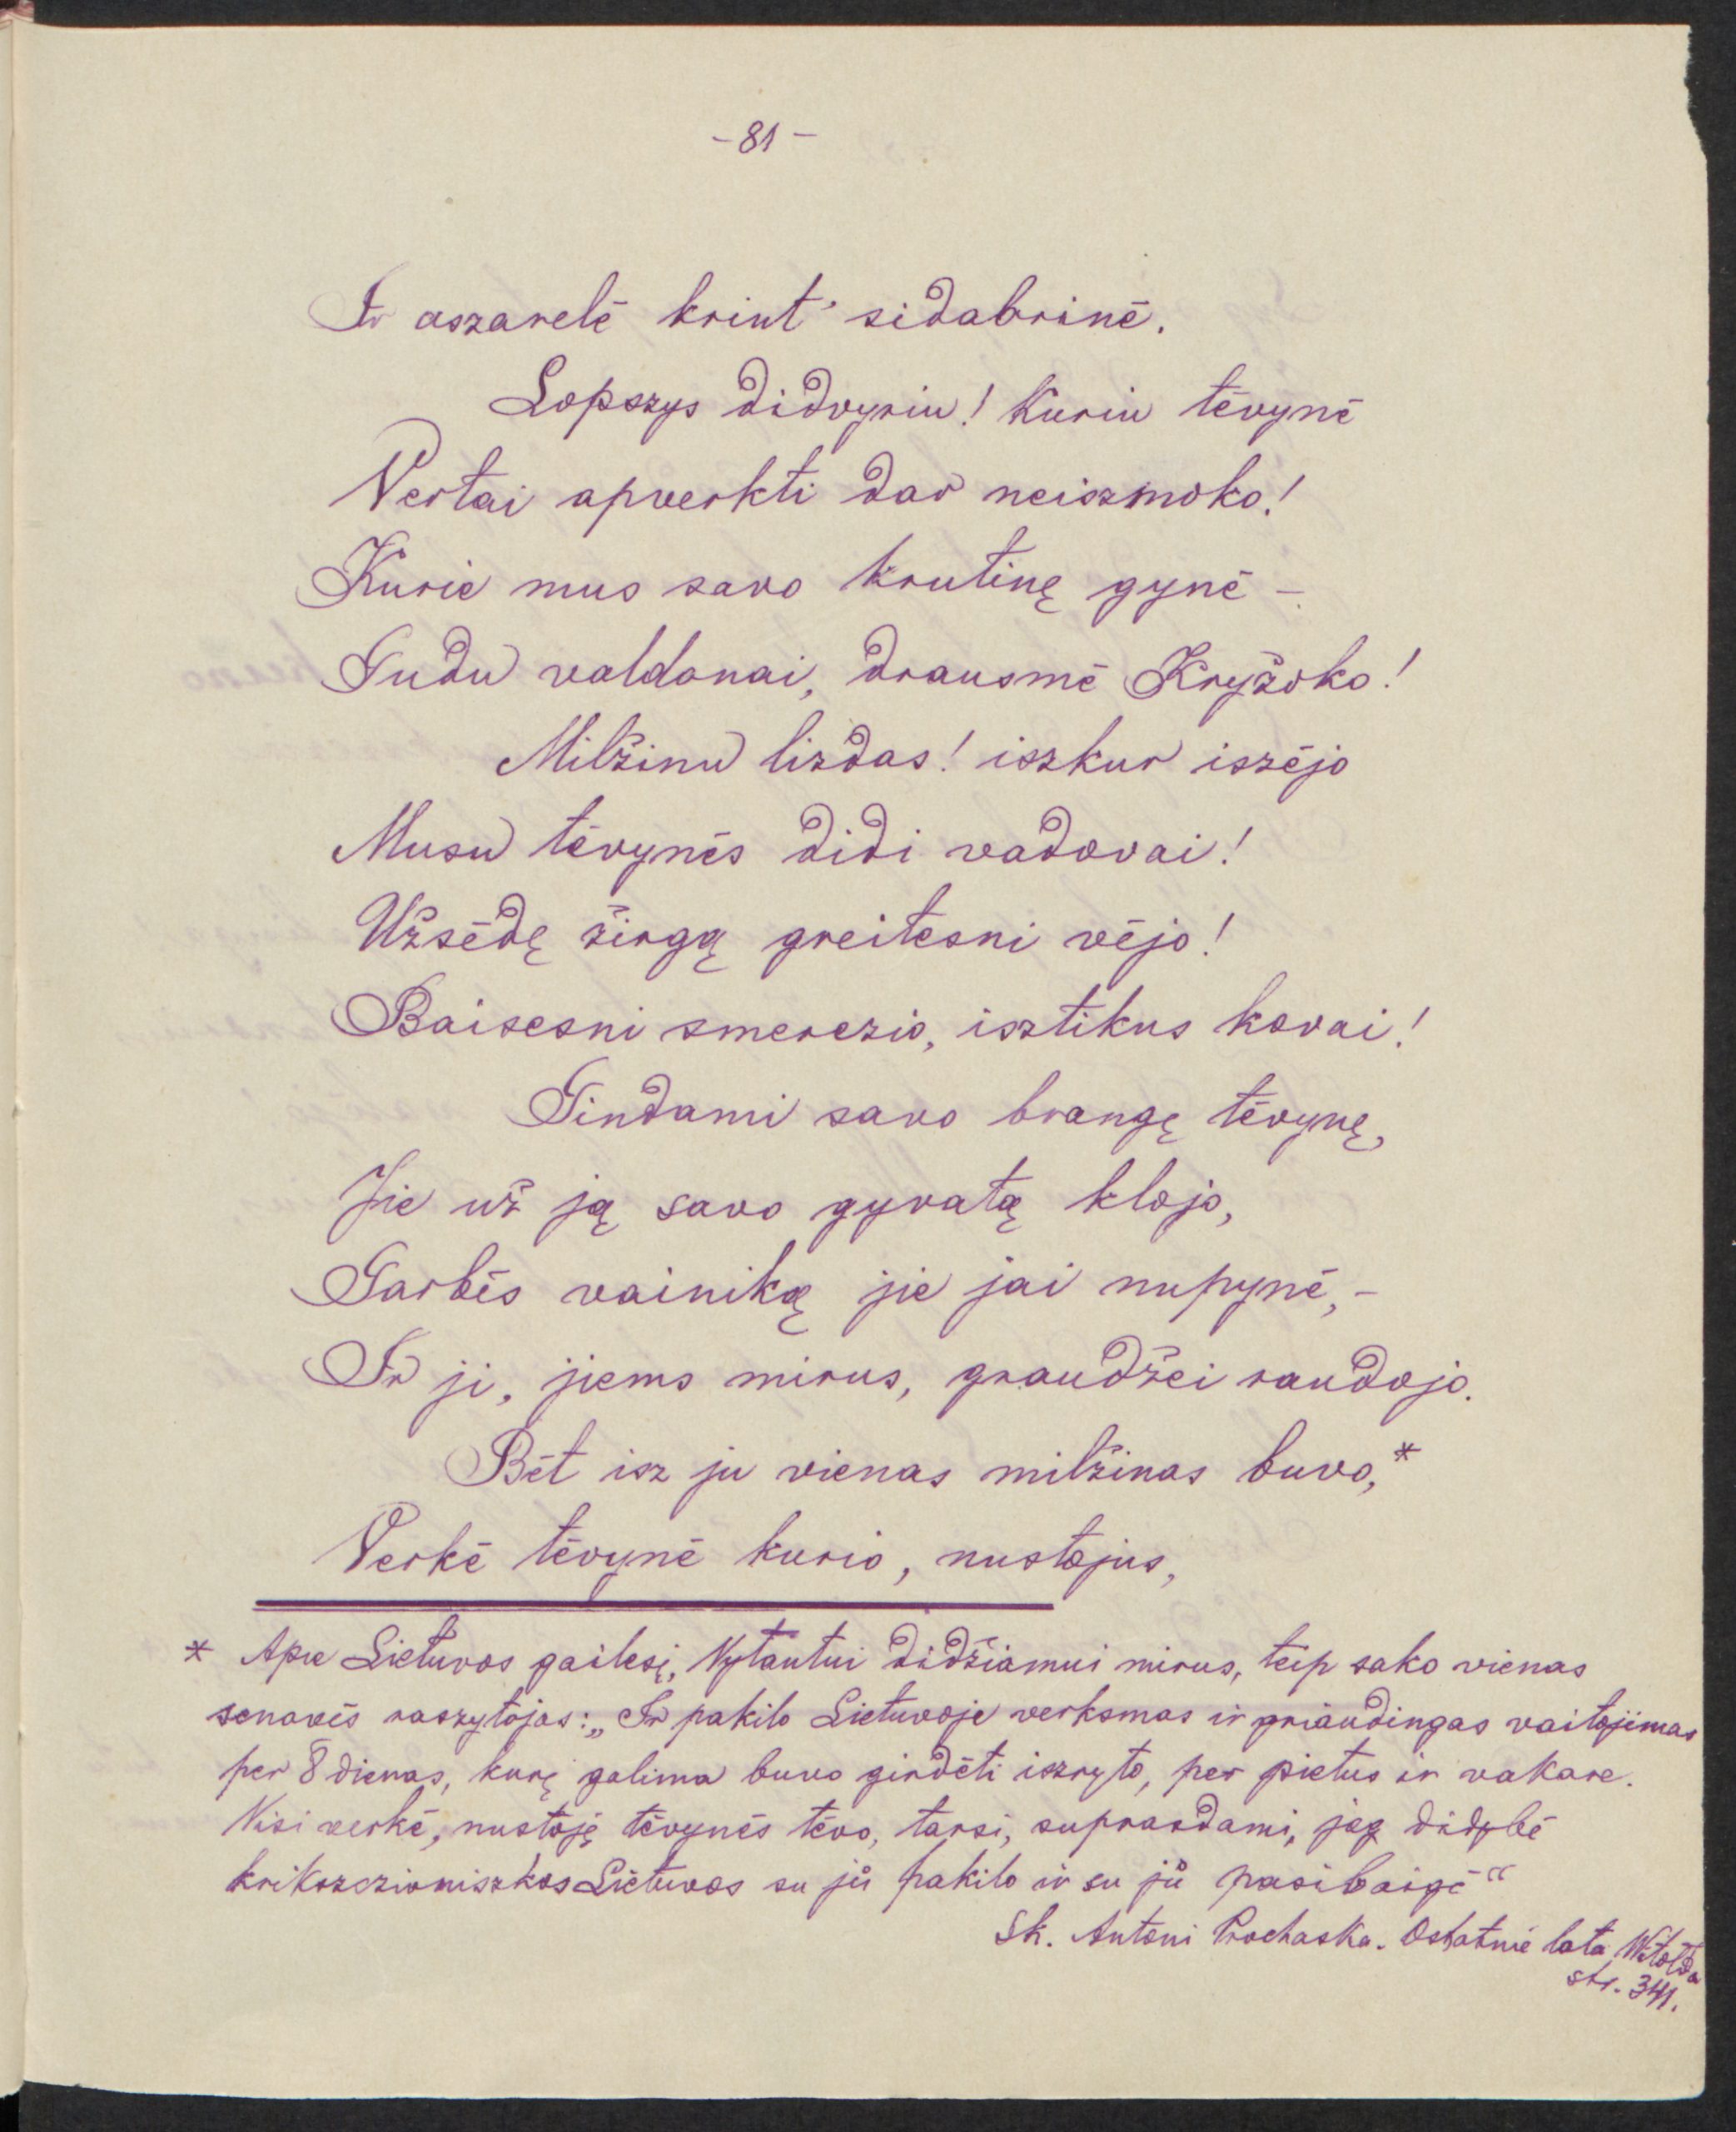 - 81 -
Ir aszarelė krint' sidabrinė.
Lopszys didvyriu! Kuriu tėvynė
Vertai apverkti dar neiszmoko!
Kurie mus savo krutinę gynė -
Gudu valdonai, drausmė Kryžoko!
Milžinu lizdas! iszkur iszėjo
Musu tėvynės didi vadovai!
Užsėdę žirgą greitesni vėjo!
Baisesni smerczio, isztikus kovai!
Gindami savo brangę tėvynę,
Jie už ją savo gyvatą klojo,
Garbės vainiką jie jai nupynė, -
Ir ji, jiems mirus, graudžei raudojo.
Bėt isz ju vienas milžinas buvo,*
Verkė tėvynė kurio, nustojus,
* Apie Lietuvos gailesį, Vytautui didžiamui mirus, teip sako vienas
senovės raszytojas: „Ir pakilo Lietuvoje verksmas ir griaudingas vaitojimas
per 8 dienas, kurį galima buvo girdėti iszryto, per pietus ir vakare.
Visi verkė, nustoję tėvynės tėvo, tarsi, suprasdami, jog didybė
krikszczioniszkos Lietuvos su jů pakilo ir su jů pasibaigė"
Sk. Antoni Prochaska. Ostatnie lata Witolda
str. 341.